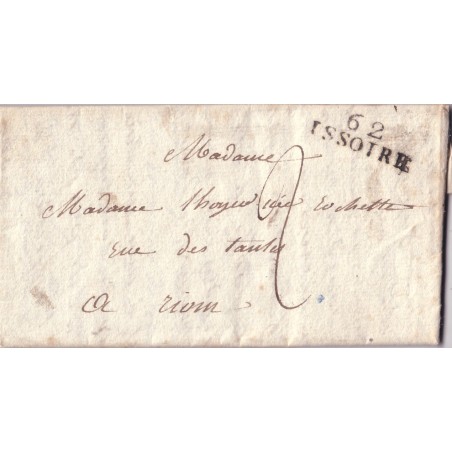 62
ISSOIRE
Madame
Madame née rochette
rue des
a riom
2